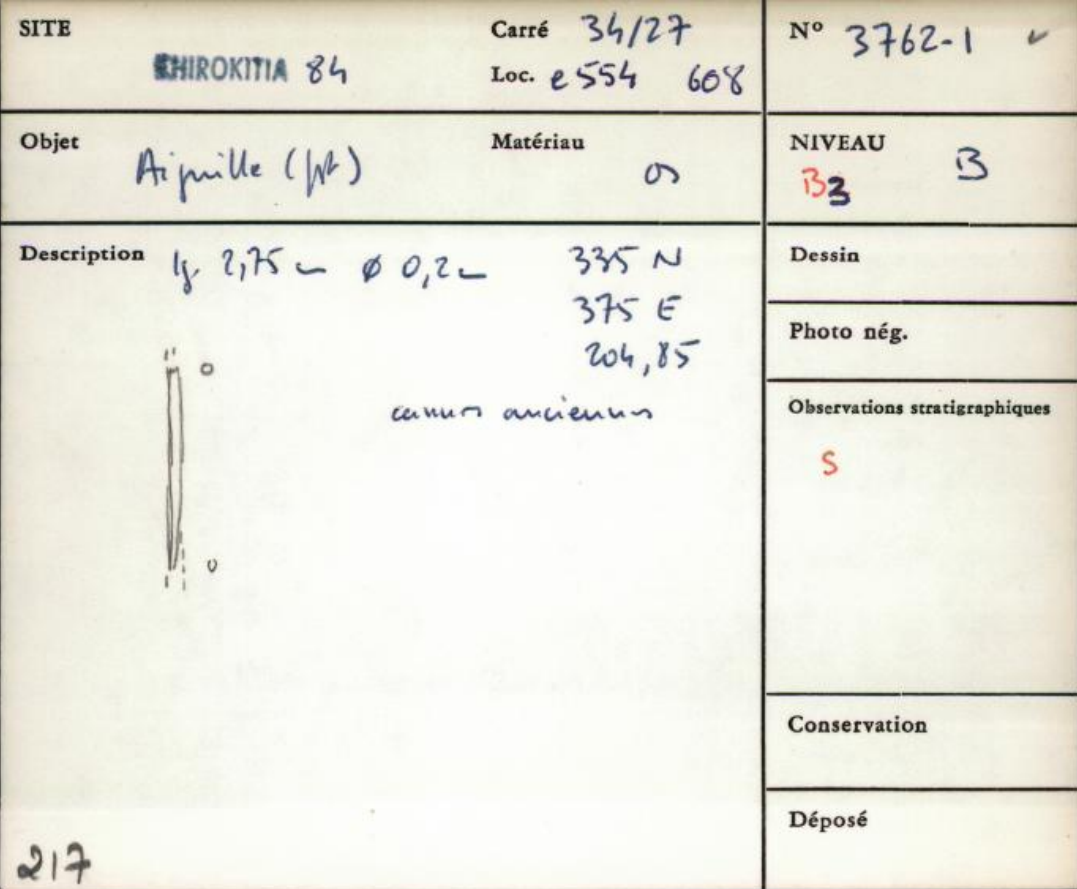 SITE
KHIROKITIA 84
Carré 34/27
Loc. e 554 608
N° 3762-1
Objet
Aiguille (fgt)
Matériau
os
NIVEAU
B3 B
Description lg. 2,75 cm ø 0,2 cm
335 N
375 E
204,85
cassures anciennes
Dessin
Photo nég.
Observations stratigraphiques
S
Conservation
Déposé
217